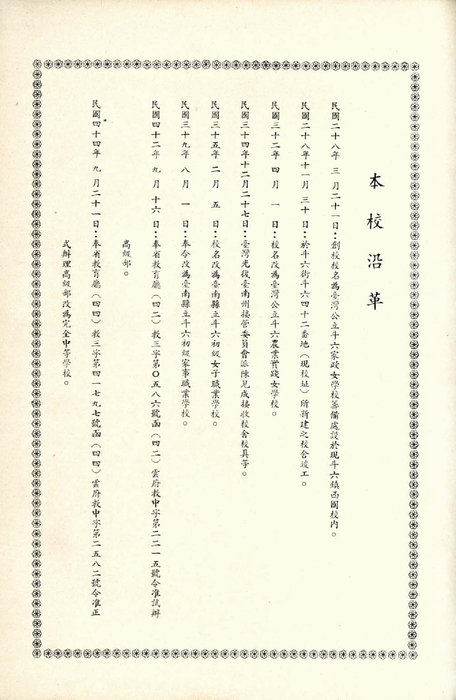 本校沿革
民國二十八年 三 月二十一日：創校校名為臺灣公立斗六家政女學校籌備處設於現斗六鎮西國校內。
民國二十八年十一月 三十日：於斗六街斗六四十二番地（現校址）所新建之校舍竣工。
民國三十二年 四 月 一 日：校名改為臺灣公立斗六農業實踐女學校。
民國三十四年十二月二十七日：臺灣光復臺南州接管委員會派陳見成接收校舍校具等。
民國三十五年 二 月 五 日：校名改為臺南縣立斗六初級女子職業學校。
民國三十九年 八 月 一 日：奉令改為臺南縣立斗六初級家事職業學校。
民國四十二年 九 月 十六 日：奉省教育廳（四二）教三字第〇五八六號函（四二）雲府教中字第二二一五號令准試辦
高級部。
民國四十四年 九 月二十一日：奉省教育廳（四四）教三字第四一七九七號函（四四）雲府教中字第二五八二號令准正
式辦理高級部改為完全中等學校。